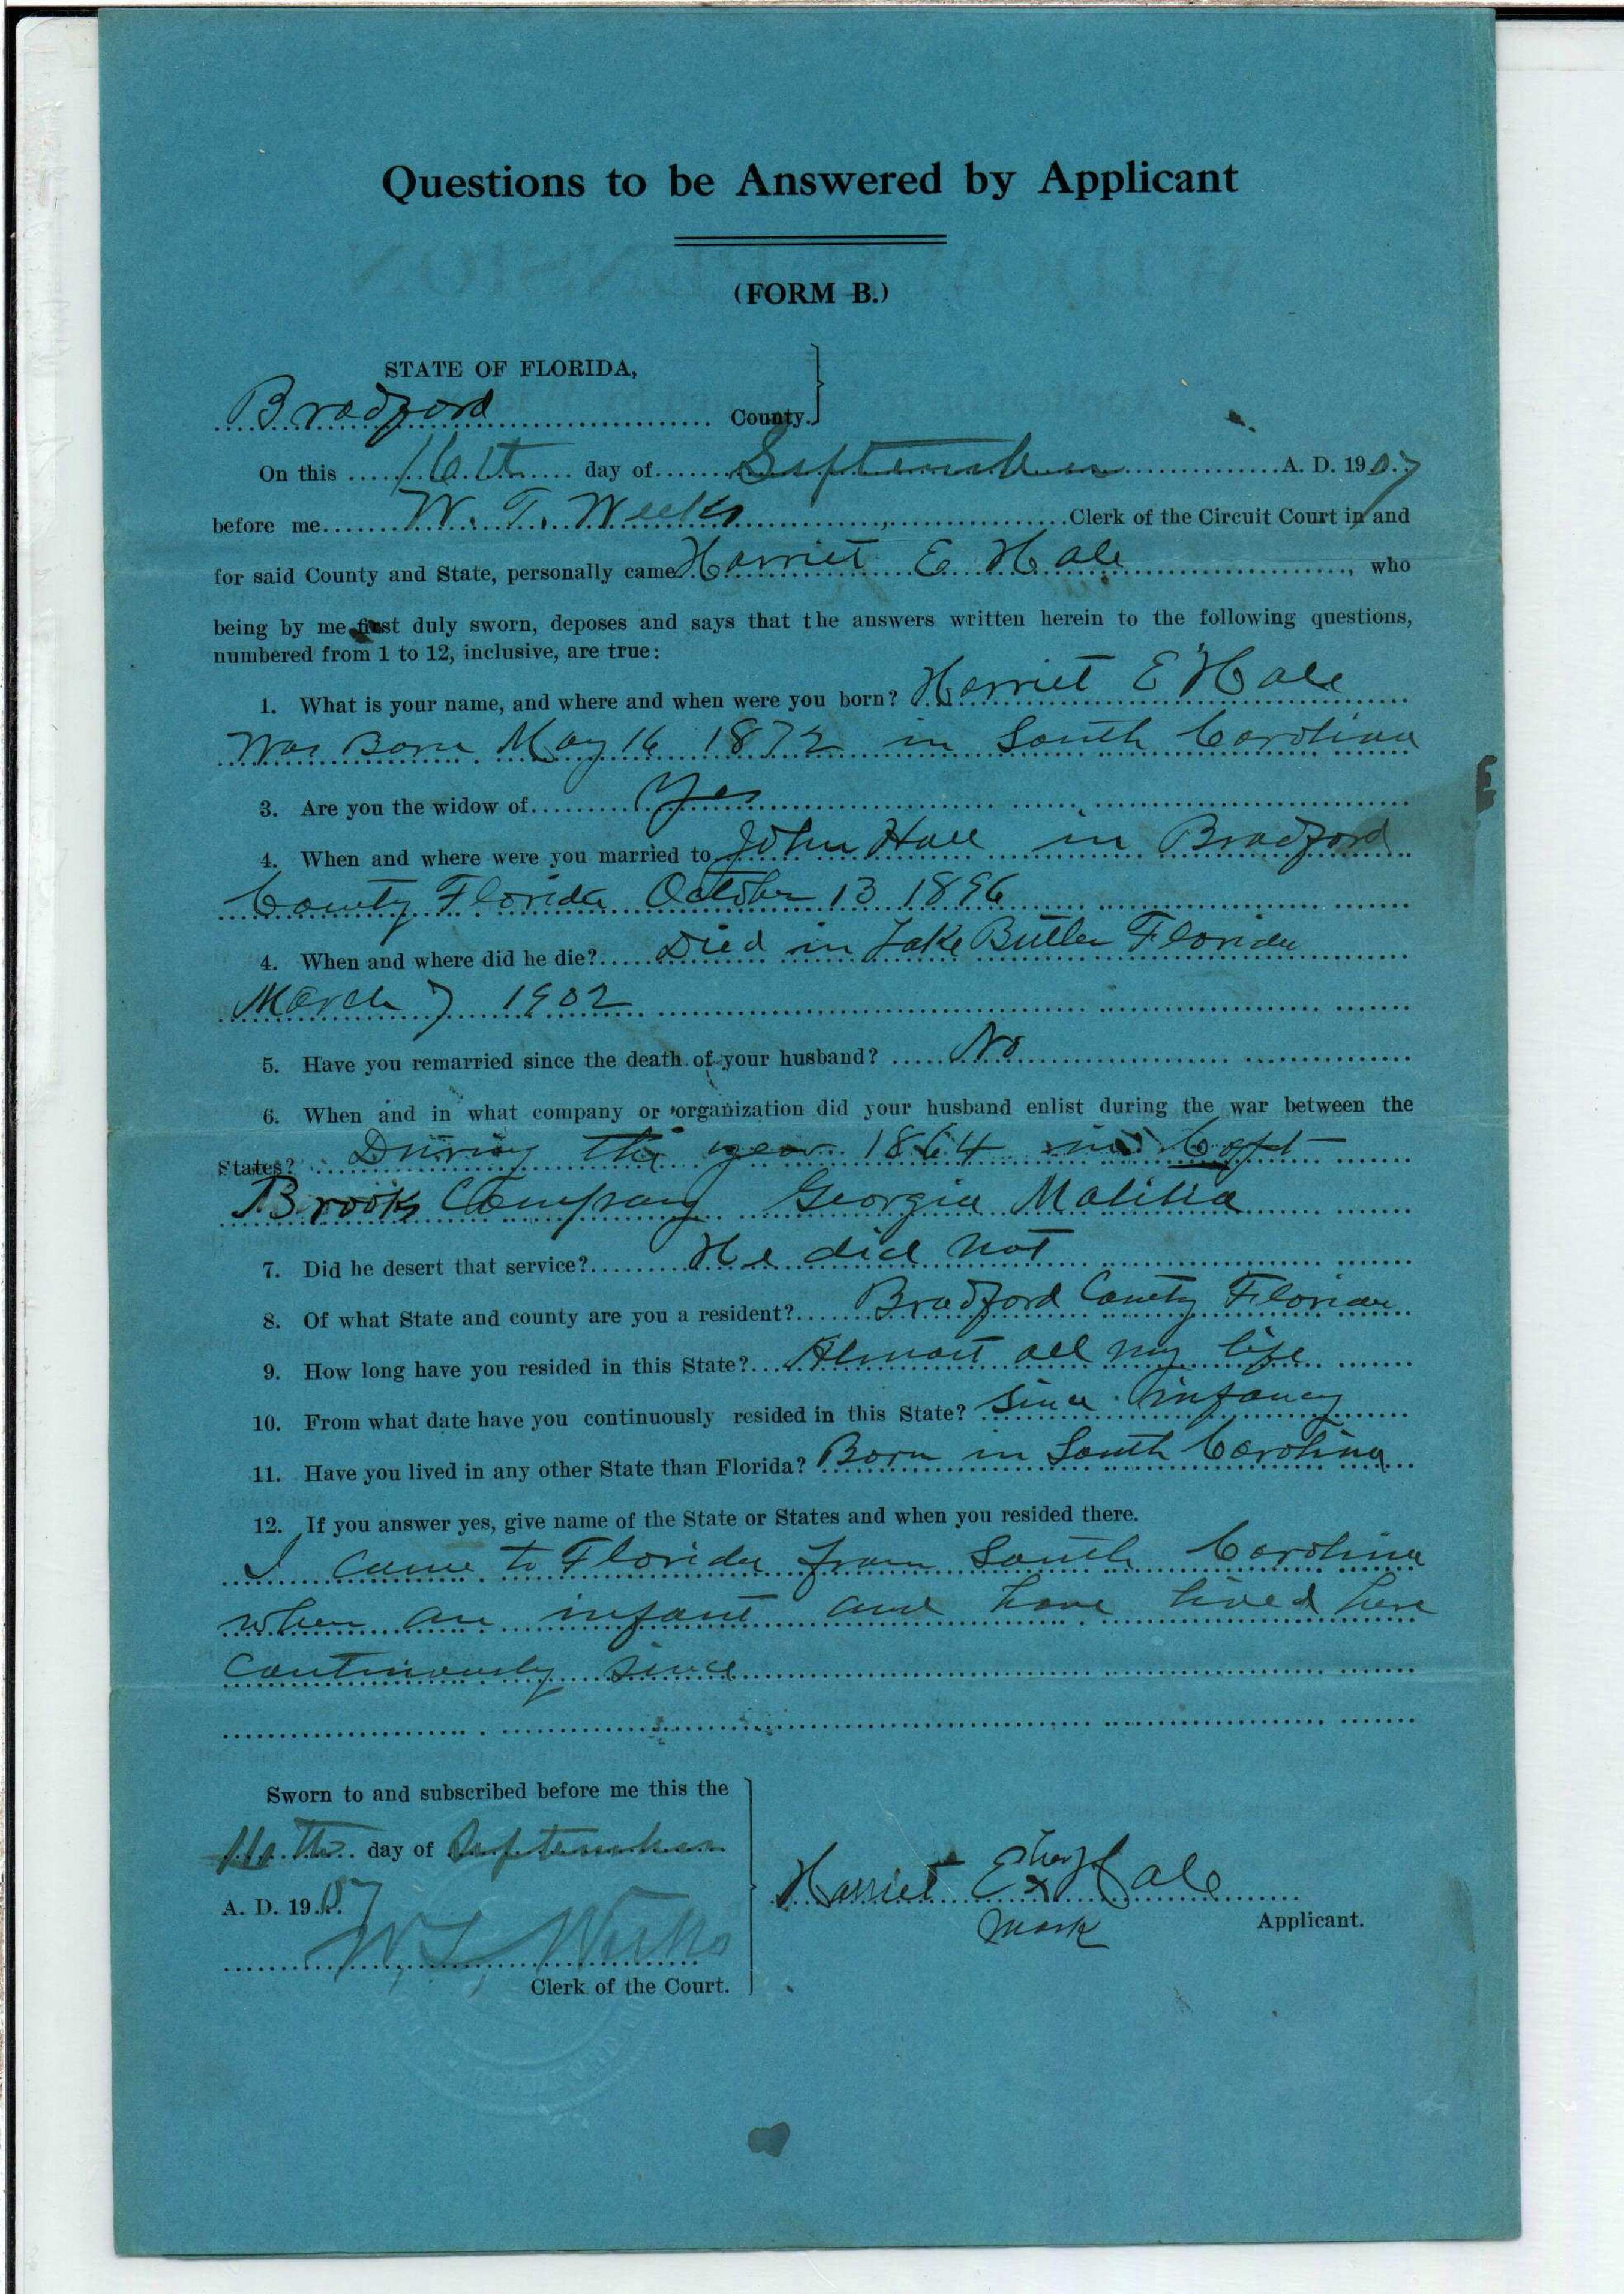 Questions to be Answered by Applicant
(FORM B.)
STATE OF FLORIDA,
Bradford County.
On this 16th day of September A. D. 1907
before me W. T. Weeks Clerk of the Circuit Court in and
for said County and State, personally came Harriet E Hale, who
being by me first duly sworn, deposes and says that the answers written herein to the following questions,
numbered from 1 to 12, inclusive, are true:
1. What is your name, and where and when were you born? Harriet E Hale
Was Born May 16 1872 in South Carolina
3. Are you the widow of Yes
4. When and where were you married to John Hale in Bradford
County Florida October 13 1896
4. When and where did he die? Died in Lake Butler Florida
March 7 1902
5. Have you remarried since the death of your husband? No
6. When and in what company or organization did your husband enlist during the war between the
States? During the year 1864 in Capt
Brooks Company Georgia Malitia
7. Did he desert that service? He did not
8. Of what State and county are you a resident? Bradford County Florida
9. How long have you resided in this State? Almost all my life
10. From what date have you continuously resided in this State? Since infancy
11. Have you lived in any other State than Florida? Born in South Carolina
12. If you answer yes, give name of the State or States and when you resided there.
I came to Florida from South Carolina
when an infant and have lived here
continuously since
Sworn to and subscribed before me this the
16th day of September
A. D. 1907
Harriet E her x Hale
mark
Applicant.
Weeks
Clerk of the Court.